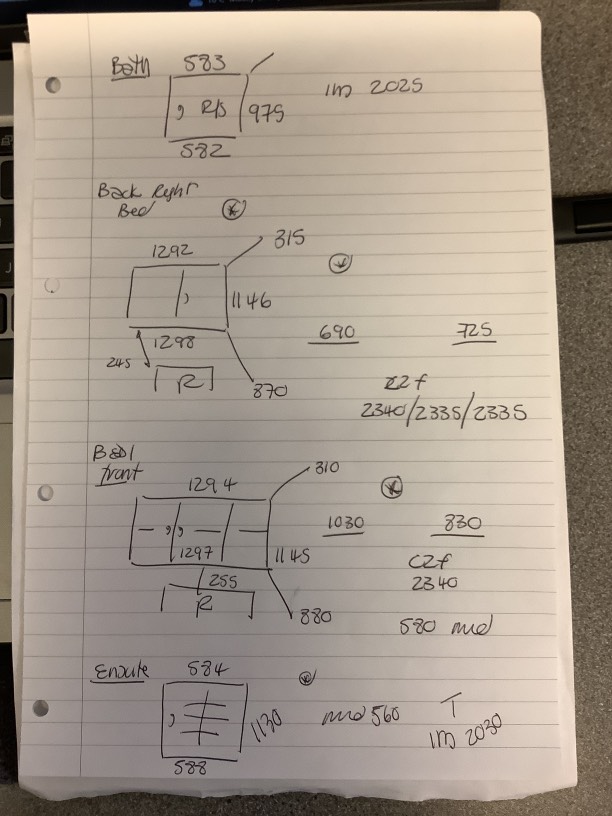 Bath 583
R/S 975 1m 2025
582
Back Right
Bed
315
1292
1146
690 725
1298
245
R 870
c2f
2340/2335/2335
Bed 1
front
310
1294
1030 830
1297 1145
c2f
255 2340
R 880
580 mid
Ensuite 584
1130 mid 560 T
1m 2030
588